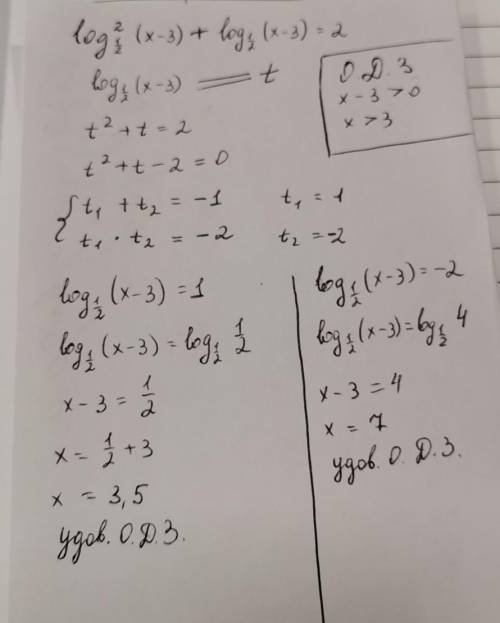 log²_{1/2} (x-3) + log_{1/2} (x-3) = 2
log_{1/2} (x-3) = t
О.Д.З
x - 3 > 0
x > 3
t² + t = 2
t² + t - 2 = 0
{ t₁ + t₂ = -1
t₁ · t₂ = -2
t₁ = 1
t₂ = -2
log_{1/2} (x-3) = 1
log_{1/2} (x-3) = log_{1/2} 1/2
x - 3 = 1/2
x = 1/2 + 3
x = 3,5
удов. О.Д.З.
log_{1/2} (x-3) = -2
log_{1/2} (x-3) = log_{1/2} 4
x - 3 = 4
x = 7
удов. О.Д.З.